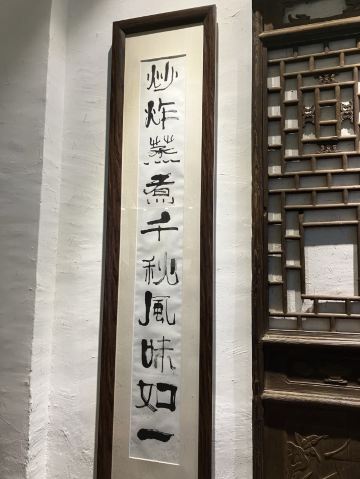 炒炸蒸煮千秋風味如一